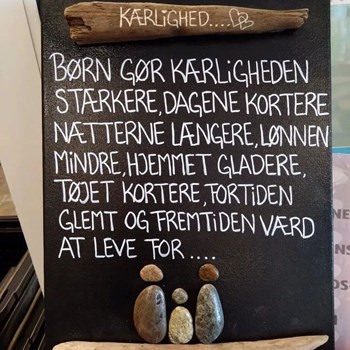 KÆRLIGHED....
BØRN GØR KÆRLiGHEDEN
STÆRKERE, DAGENE KORTERE
NÆTTERNE LÆNGERE, LØNNEN
MiNDRE, HJEMMET GLADERE,
TØJET KORTERE, FORTiDEN
GLEMT OG FREMTiDEN VÆRD
AT LEVE FOR ....